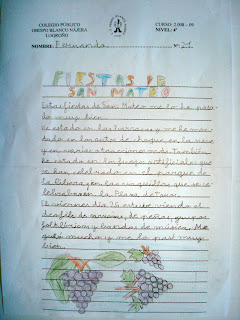 COLEGIO PÚBLICO
OBISPO BLANCO NAJERA
LOGROÑO
CURSO: 2.008 - 09
NIVEL: 4º
NOMBRE: Fernanda Nº 21
FIESTAS DE
SAN MATEO
Estas fiestas de San Mateo me lo he pasa-
do muy bien.
He estado en las barracas y me he mon-
dado en los autos de choque, en la noria
y en varias atracciones más. También
he estado en los fuegos artificiales que
se han celebrado en el parque de
la Ribera y en las vaquillas que se ce-
lebraban en la Plaza de Toros.
El viernes día 26 estuve viendo el
desfile de carrozas, de peñas, grupos
folklóricos y bandas de música. Me
gustó mucho y me lo pasé muy
bien.